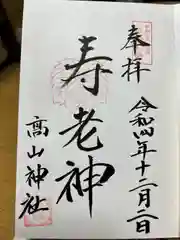 奉拝
令和四年十二月二日
寿老神
高山神社